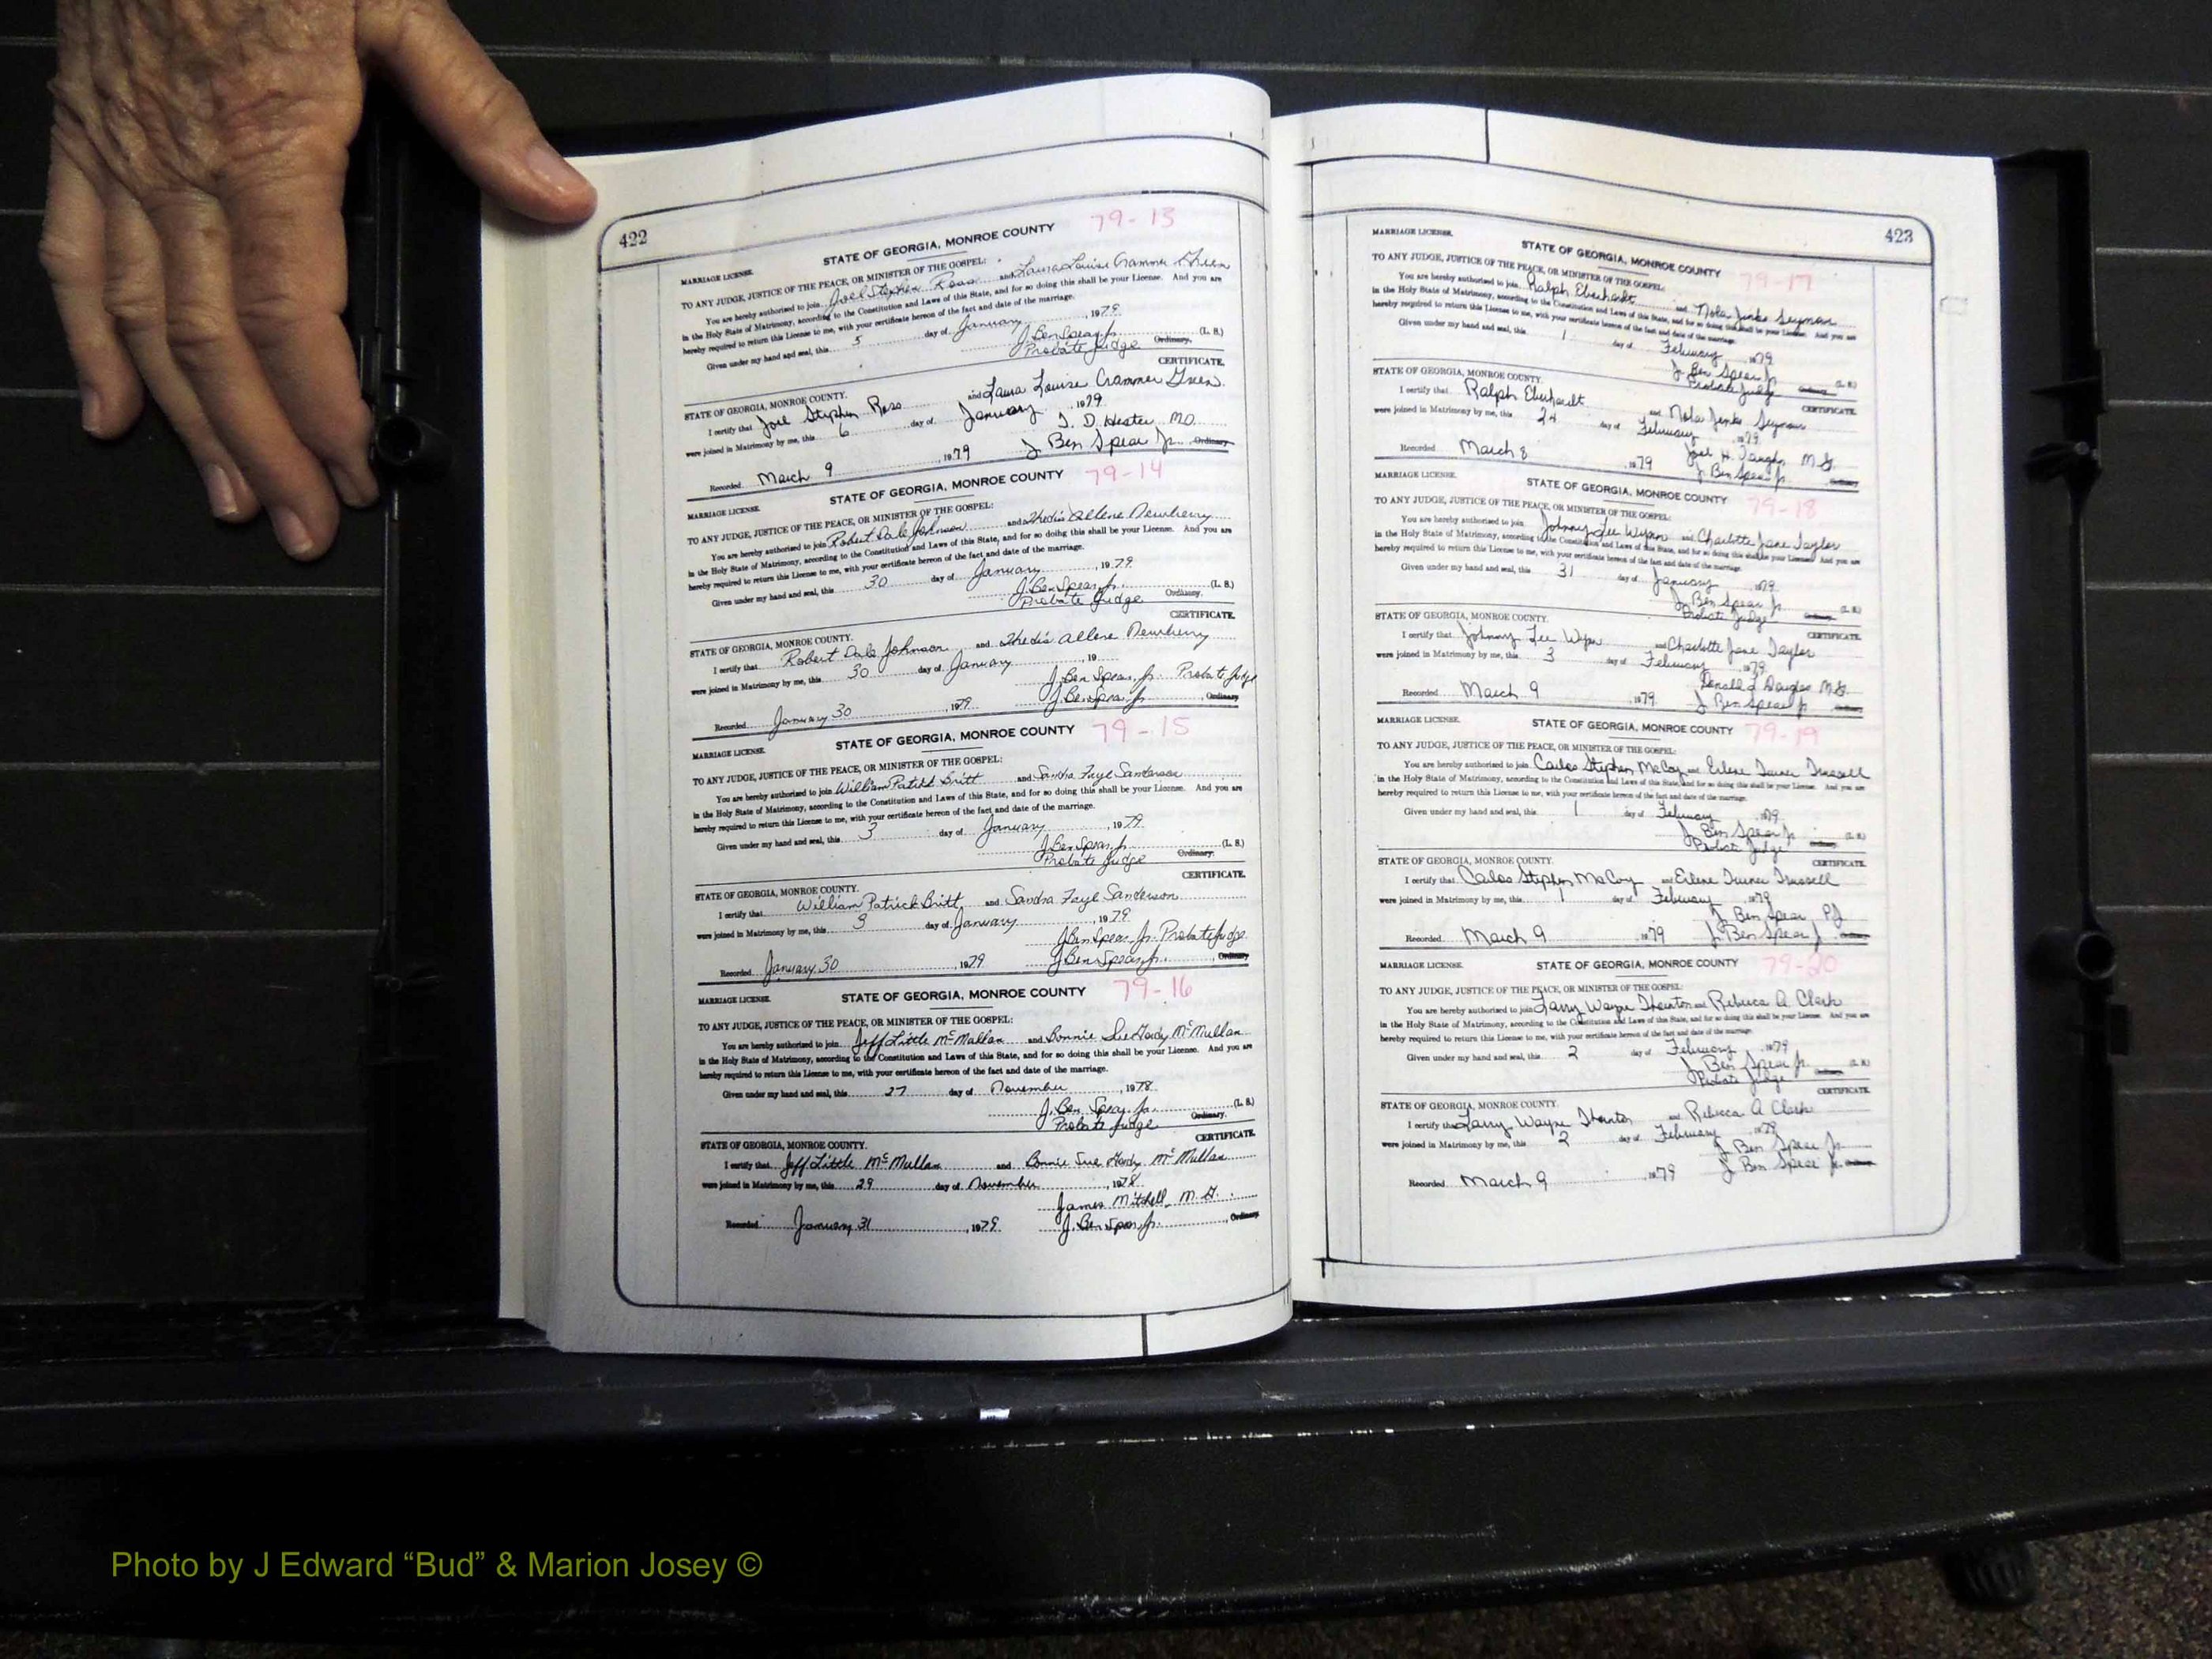 422
79-13
STATE OF GEORGIA, MONROE COUNTY
MARRIAGE LICENSE.
TO ANY JUDGE, JUSTICE OF THE PEACE, OR MINISTER OF THE GOSPEL:
You are hereby authorised to join Joel Stephen Ross and Laura Louise Crammer Green
in the Holy State of Matrimony, according to the Constitution and Laws of this State, and for so doing this shall be your License. And you are
hereby required to return this License to me, with your certificate hereon of the fact and date of the marriage.
Given under my hand and seal, this 5 day of January, 1979
J. Ben Spear Jr. (L. S.)
Probate Judge Ordinary.
CERTIFICATE.
STATE OF GEORGIA, MONROE COUNTY.
I certify that Joel Stephen Ross and Laura Louise Crammer Green
were joined in Matrimony by me, this 6 day of January, 1979
J. D. Hester M.D.
Recorded March 9, 1979 J Ben Spear Jr. Ordinary
79-14
STATE OF GEORGIA, MONROE COUNTY
MARRIAGE LICENSE.
TO ANY JUDGE, JUSTICE OF THE PEACE, OR MINISTER OF THE GOSPEL:
You are hereby authorised to join Robert Dale Johnson and Thedis Allene Newberry
in the Holy State of Matrimony, according to the Constitution and Laws of this State, and for so doing this shall be your License. And you are
hereby required to return this License to me, with your certificate hereon of the fact and date of the marriage.
Given under my hand and seal, this 30 day of January, 1979
J. Ben Spear Jr. (L. S.)
Probate Judge Ordinary.
CERTIFICATE.
STATE OF GEORGIA, MONROE COUNTY.
I certify that Robert Dale Johnson and Thedis Allene Newberry
were joined in Matrimony by me, this 30 day of January, 19
J. Ben Spear, Jr. Probate Judge
Recorded January 30, 1979 J. Ben Spear Jr. Ordinary
79-15
STATE OF GEORGIA, MONROE COUNTY
MARRIAGE LICENSE.
TO ANY JUDGE, JUSTICE OF THE PEACE, OR MINISTER OF THE GOSPEL:
You are hereby authorised to join William Patrick Britt and Sandra Faye Sanderson
in the Holy State of Matrimony, according to the Constitution and Laws of this State, and for so doing this shall be your License. And you are
hereby required to return this License to me, with your certificate hereon of the fact and date of the marriage.
Given under my hand and seal, this 3 day of January, 1979
J. Ben Spear, Jr. (L. S.)
Probate Judge Ordinary.
CERTIFICATE.
STATE OF GEORGIA, MONROE COUNTY.
I certify that William Patrick Britt and Sandra Faye Sanderson
were joined in Matrimony by me, this 3 day of January, 1979
J. Ben Spear, Jr. Probate Judge
Recorded January 30, 1979 J. Ben Spear, Jr. Ordinary
79-16
STATE OF GEORGIA, MONROE COUNTY
MARRIAGE LICENSE.
TO ANY JUDGE, JUSTICE OF THE PEACE, OR MINISTER OF THE GOSPEL:
You are hereby authorised to join Jeff Little McMullan and Bonnie Sue Hardy McMullan
in the Holy State of Matrimony, according to the Constitution and Laws of this State, and for so doing this shall be your License. And you are
hereby required to return this License to me, with your certificate hereon of the fact and date of the marriage.
Given under my hand and seal, this 27 day of November, 1978
J. Ben Spear, Jr. (L. S.)
Probate Judge Ordinary.
CERTIFICATE.
STATE OF GEORGIA, MONROE COUNTY.
I certify that Jeff Little McMullan and Bonnie Sue Hardy McMullan
were joined in Matrimony by me, this 29 day of November, 1978
James Mitchell, M. G.
Recorded January 31, 1979 J. Ben Spear, Jr., Ordinary
423
MARRIAGE LICENSE.
STATE OF GEORGIA, MONROE COUNTY
79-17
TO ANY JUDGE, JUSTICE OF THE PEACE, OR MINISTER OF THE GOSPEL:
You are hereby authorised to join Ralph Eberhardt and Nola Jenks Seymour
in the Holy State of Matrimony, according to the Constitution and Laws of this State, and for so doing this shall be your License. And you are
hereby required to return this License to me, with your certificate hereon of the fact and date of the marriage.
Given under my hand and seal, this 1 day of February 1979
J. Ben Spear Jr. (L. S.)
Probate Judge Ordinary.
CERTIFICATE.
STATE OF GEORGIA, MONROE COUNTY.
I certify that Ralph Eberhardt and Nola Jenks Seymour
were joined in Matrimony by me, this 24 day of February 1979
Joel H. Vaughn M.G.
Recorded March 8 1979 J. Ben Spear Jr. Ordinary
MARRIAGE LICENSE.
STATE OF GEORGIA, MONROE COUNTY
79-18
TO ANY JUDGE, JUSTICE OF THE PEACE, OR MINISTER OF THE GOSPEL:
You are hereby authorised to join Johnny Lee Wynn and Charlotte Jane Taylor
in the Holy State of Matrimony, according to the Constitution and Laws of this State, and for so doing this shall be your License. And you are
hereby required to return this License to me, with your certificate hereon of the fact and date of the marriage.
Given under my hand and seal, this 31 day of January 1979
J. Ben Spear Jr. (L. S.)
Probate Judge Ordinary.
CERTIFICATE.
STATE OF GEORGIA, MONROE COUNTY.
I certify that Johnny Lee Wynn and Charlotte Jane Taylor
were joined in Matrimony by me, this 3 day of February 1979
Donald L Douglas M.G.
Recorded March 9 1979. J Ben Spear Jr Ordinary
MARRIAGE LICENSE.
STATE OF GEORGIA, MONROE COUNTY
79-19
TO ANY JUDGE, JUSTICE OF THE PEACE, OR MINISTER OF THE GOSPEL:
You are hereby authorised to join Carlos Stephen McCoy and Erlene Turner Trussell
in the Holy State of Matrimony, according to the Constitution and Laws of this State, and for so doing this shall be your License. And you are
hereby required to return this License to me, with your certificate hereon of the fact and date of the marriage.
Given under my hand and seal, this 1 day of February 1979.
J Ben Spear Jr (L. S.)
Probate Judge Ordinary.
CERTIFICATE.
STATE OF GEORGIA, MONROE COUNTY.
I certify that Carlos Stephen McCoy and Erlene Turner Trussell
were joined in Matrimony by me, this 1 day of February 1979
J Ben Spear, P.J
Recorded March 9 1979 J. Ben Spear J. Ordinary
MARRIAGE LICENSE.
STATE OF GEORGIA, MONROE COUNTY
79-20
TO ANY JUDGE, JUSTICE OF THE PEACE, OR MINISTER OF THE GOSPEL:
You are hereby authorised to join Larry Wayne Thornton and Rebecca A. Clark
in the Holy State of Matrimony, according to the Constitution and Laws of this State, and for so doing this shall be your License. And you are
hereby required to return this License to me, with your certificate hereon of the fact and date of the marriage.
Given under my hand and seal, this 2 day of February 1979
J Ben Spear Jr. (L. S.)
Probate Judge Ordinary.
CERTIFICATE.
STATE OF GEORGIA, MONROE COUNTY.
I certify that Larry Wayne Thornton and Rebecca A Clark
were joined in Matrimony by me, this 2 day of February 1979
J Ben Spear Jr.
Recorded March 9 1979 J Ben Spear Jr. Ordinary
Photo by J Edward “Bud” & Marion Josey ©